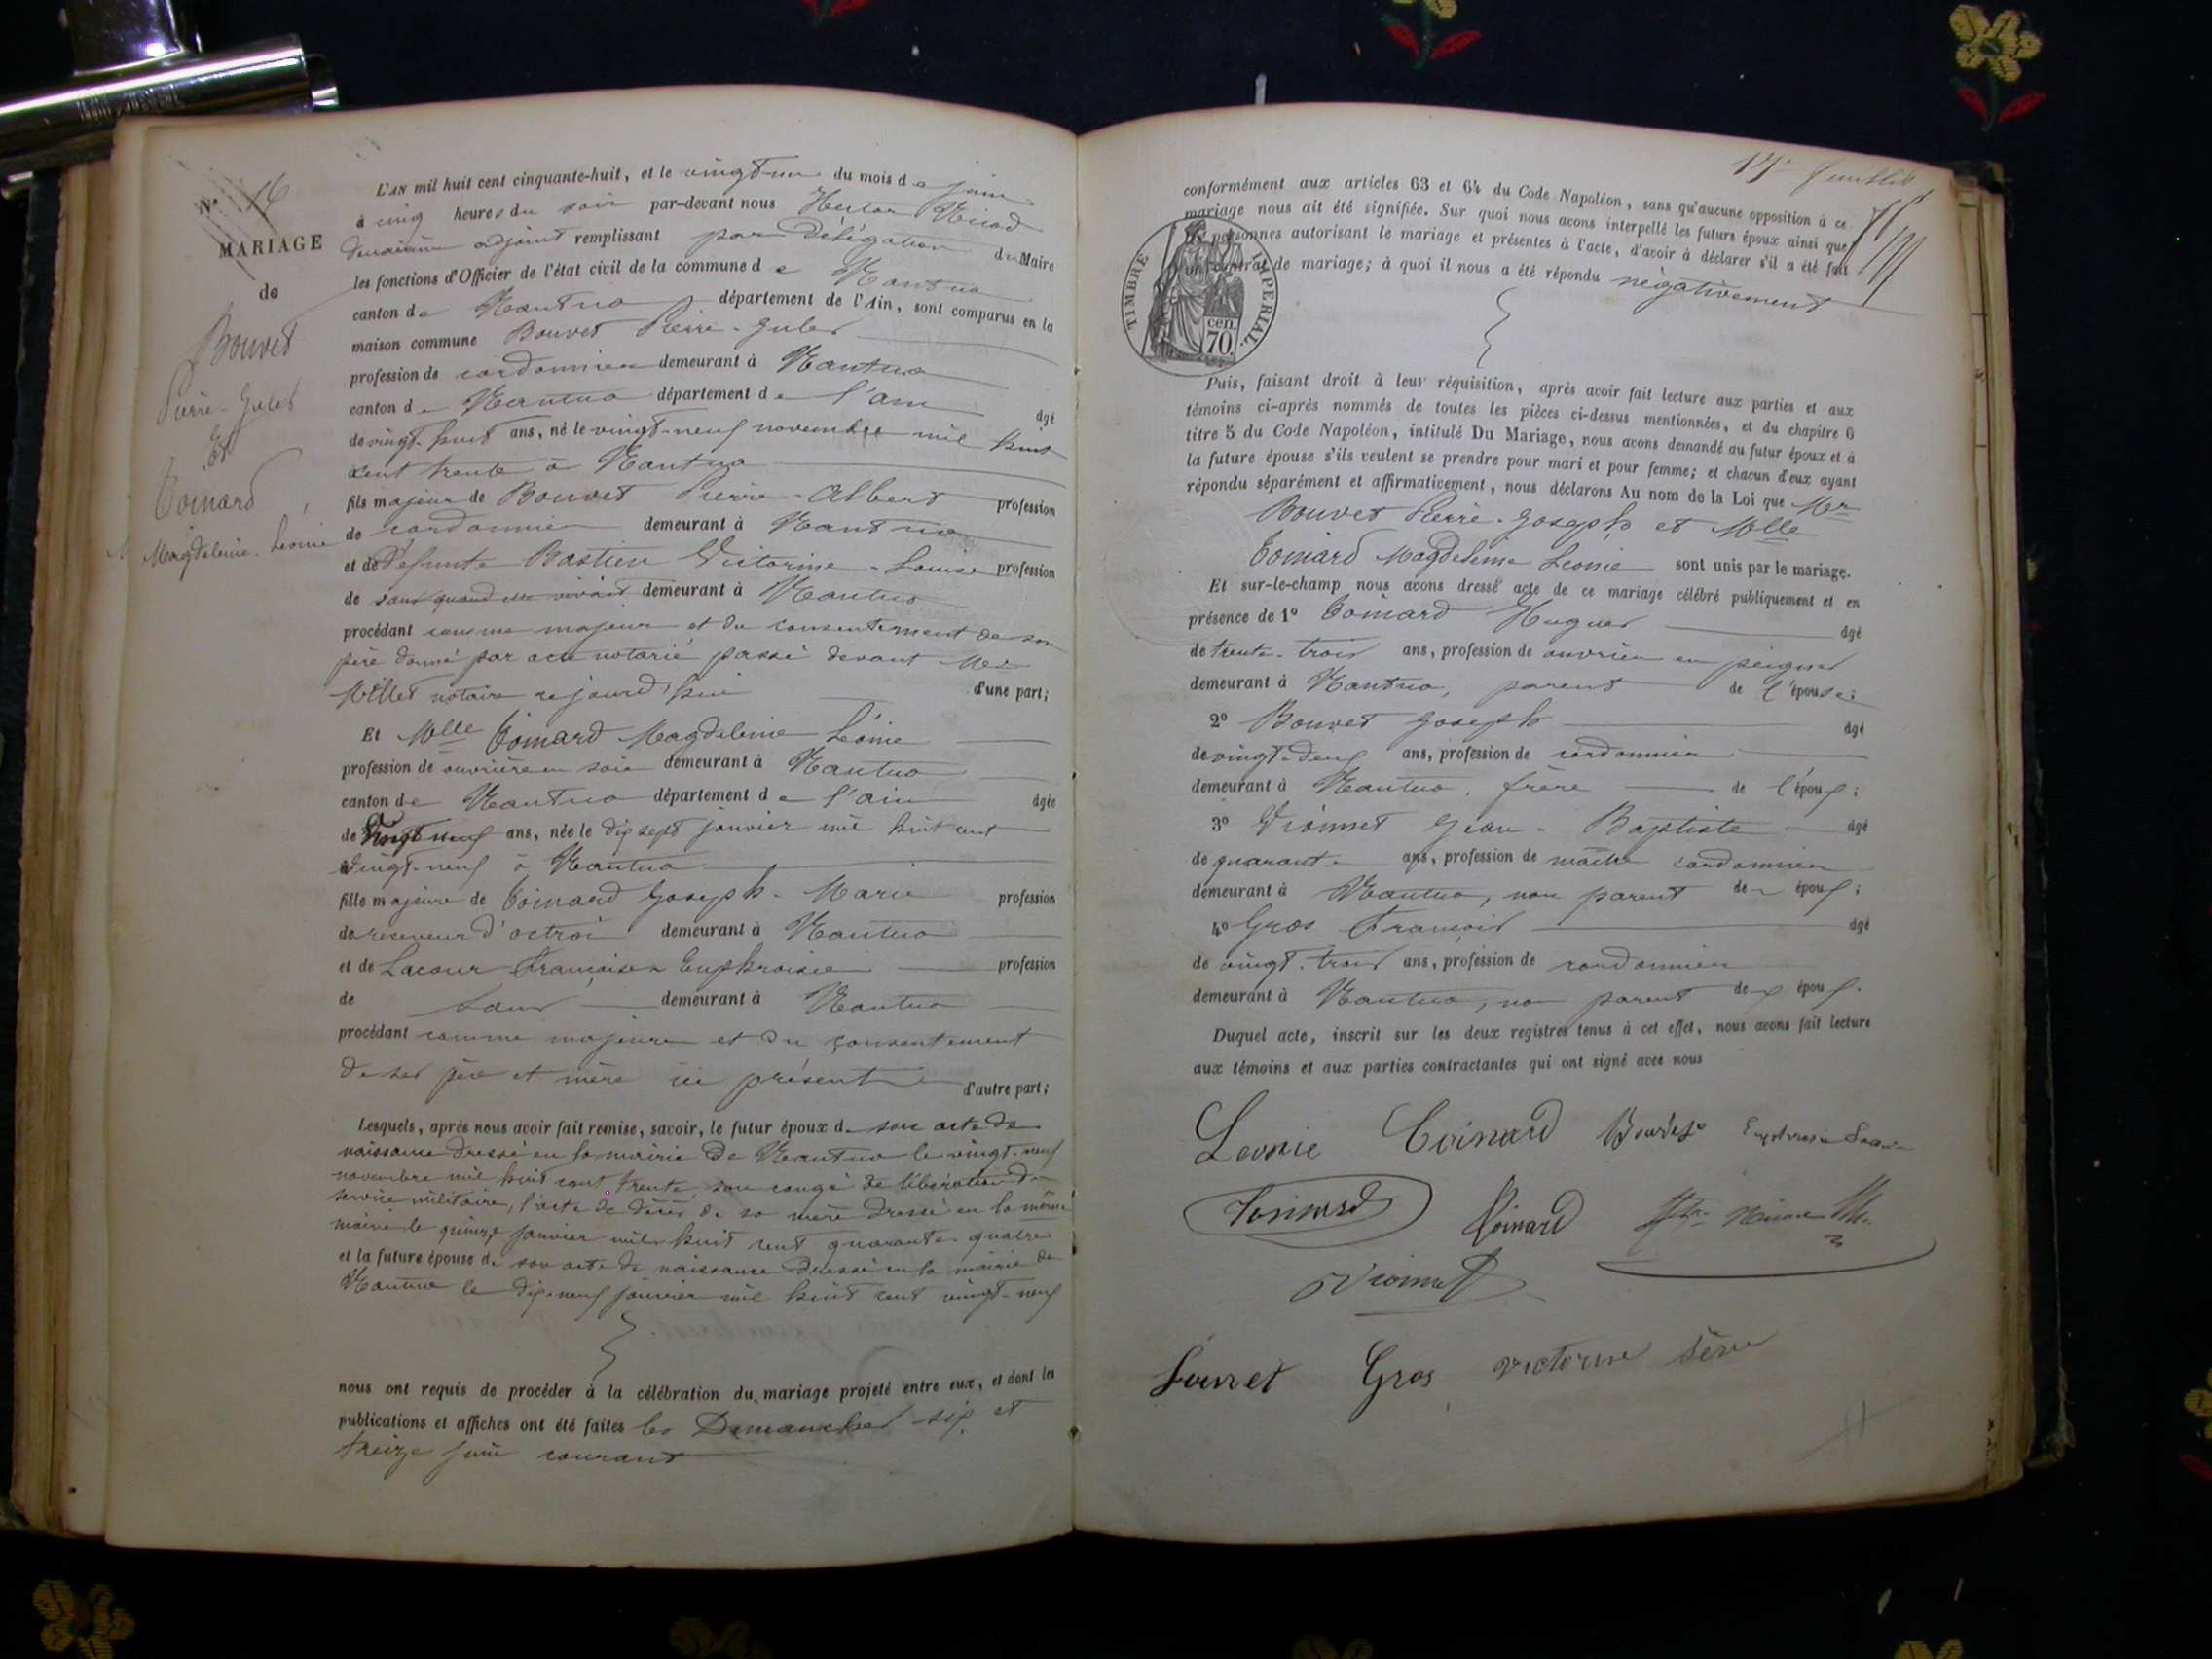 N° 16
MARIAGE
de
Bouvet
Pierre-Jules
Et
Coinard
Magdeleine-Léonie
L'AN mil huit cent cinquante-huit, et le vingt-un du mois de juin
à cinq heures du soir par-devant nous Hector
deuxième adjoint remplissant par délégation du Maire
les fonctions d'Officier de l'état civil de la commune de Nantua
canton de Nantua département de l'Ain, sont comparus en la
maison commune Bouvet Pierre-Jules
profession de cordonnier demeurant à Nantua
canton de Nantua département de l'ain âgé
de vingt-huit ans, né le vingt-neuf novembre mil huit
cent trente à Nantua
fils majeur de Bouvet Pierre-Albert profession
de cordonnier demeurant à Nantua
et de Defunte Bastien Victorine-Louise profession
de sans quand elle vivait demeurant à Nantua
procédant comme majeur et du consentement de son
père donné par acte notarié passé devant Mer
Millet notaire ce jourd'hui d'une part;
Et Melle Coinard Magdeleine Léonie
profession de ouvrière en soie demeurant à Nantua
canton de Nantua département de l'ain âgée
de Vingt neuf ans, née le dix sept janvier mil huit cent
vingt-neuf à Nantua
fille majeure de Coinard Joseph-Marie profession
de receveur d'octroi demeurant à Nantua
et de Lacour Françoise Euphroisie profession
de sans demeurant à Nantua
procédant comme majeure et du consentement
de ses père et mère ici présent d'autre part;
Lesquels, après nous avoir fait remise, savoir, le futur époux de son acte de
naissance dressé en la mairie de Nantua le vingt-neuf
novembre mil huit cent trente son congé de libération du
service militaire, l'acte de décès de sa mère dressé en la même
mairie le quinze janvier mil huit cent quarante quatre
et la future épouse de son acte de naissance dressé en la mairie de
Nantua le dix-neuf janvier mil huit cent vingt-neuf
nous ont requis de procéder à la célébration du mariage projeté entre eux, et dont les
publications et affiches ont été faites les Dimanches six et
treize juin courant
17e feuillet
conformément aux articles 63 et 64 du Code Napoléon, sans qu'aucune opposition à ce
mariage nous ait été signifiée. Sur quoi nous avons interpellé les futurs époux ainsi que
personnes autorisant le mariage et présentes à l'acte, d'avoir à déclarer s'il a été fait
un contrat de mariage; à quoi il nous a été répondu négativement
TIMBRE IMPERIAL.
cen.
70.
Puis, faisant droit à leur réquisition, après avoir fait lecture aux parties et aux
témoins ci-après nommés de toutes les pièces ci-dessus mentionnées, et du chapitre 6
titre 5 du Code Napoléon, intitulé Du Mariage, nous avons demandé au futur époux et à
la future épouse s'ils veulent se prendre pour mari et pour femme; et chacun d'eux ayant
répondu séparément et affirmativement, nous déclarons Au nom de la Loi que Mer
Bouvet Pierre-Joseph et Melle
Coinard Magdeleine Leonie sont unis par le mariage.
Et sur-le-champ nous avons dressé acte de ce mariage célébré publiquement et en
présence de 1° Coinard Hugues âgé
de trente-trois ans, profession de ouvrier en peignes
demeurant à Nantua, parent de l'épouse;
2° Bouvet Joseph âgé
de vingt-deux ans, profession de cordonnier
demeurant à Nantua, frère de l'époux;
3° Vionnet Jean-Baptiste âgé
de quarante ans, profession de maître cordonnier
demeurant à Nantua, non parent des époux;
4° Gros François âgé
de vingt-trois ans, profession de cordonnier
demeurant à Nantua, non parent des époux.
Duquel acte, inscrit sur les deux registres tenus à cet effet, nous avons fait lecture
aux témoins et aux parties contractantes qui ont signé avec nous
Leonie Coinard
Coinard Coinard
Vionnet
Gros victorine